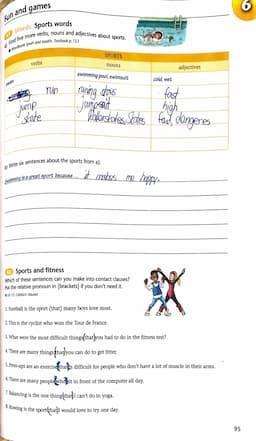 Fun and games
6
Words: Sports words
a) Find five more verbs, nouns and adjectives about sports.
SPORTS
verbs
nouns
adjectives
swimming pool, swimsuit
cold, wet
run
runing shos
fast
jump
high
skate
b) Write six sentences about the sports from a).
Swimming is a great sport because... it makes me happy.
Sports and fitness
Which of these sentences can you make into contact clauses?
Put the relative pronoun in (brackets) if you don't need it.
1. Football is the sport (that) many boys love most.
2. This is the cyclist who won the Tour de France.
3. What were the most difficult things (that) you had to do in the fitness test?
4. There are many things (that) you can do to get fitter.
5. Press-ups are an exercise (that) is difficult for people who don't have a lot of muscle in their arms.
6. There are many people sit in front of the computer all day.
7. Balancing is the one thing (that) I can't do in yoga.
8. Rowing is the sport (that) I would love to try one day.
95